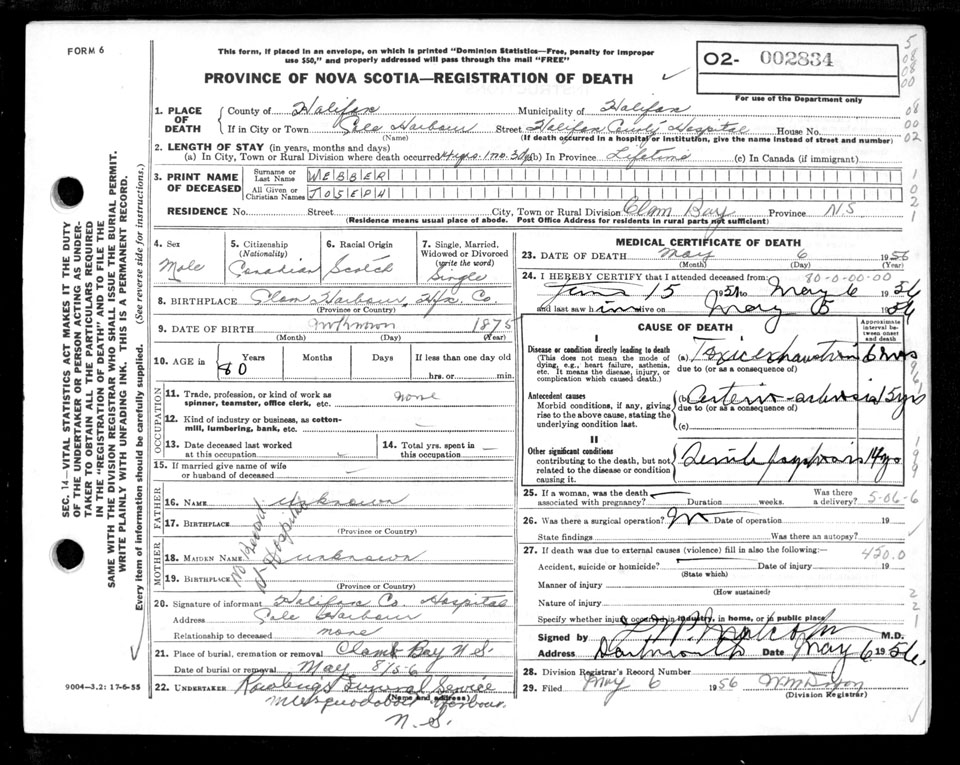 FORM 6
This form, if placed in an envelope, on which is printed "Dominion Statistics—Free, penalty for improper
use $50," and properly addressed will pass through the mail "FREE"
PROVINCE OF NOVA SCOTIA—REGISTRATION OF DEATH
O2- 002834
For use of the Department only
1. PLACE OF DEATH
County of Halifax Municipality of Halifax
If in City or Town Cole Harbour Street Halifax County Hospital House No.
(Name) (If death occurred in a hospital or institution, give the name instead of street and number)
2. LENGTH OF STAY (in years, months and days)
(a) In City, Town or Rural Division where death occurred 4 yrs. 1 mo. 3 dys (b) In Province Lifetime (c) In Canada (if immigrant)
3. PRINT NAME OF DECEASED
Surname or Last Name WEBBER
All Given or Christian Names JOSEPH
RESIDENCE No. Street City, Town or Rural Division Clam Bay Province N.S
(Residence means usual place of abode. Post Office Address for residents in rural parts not sufficient)
4. Sex Male
5. Citizenship (Nationality) Canadian
6. Racial Origin Scotch
7. Single, Married, Widowed or Divorced (write the word) Single
8. BIRTHPLACE Clam Harbour, Hfx. Co.
(Province or Country)
9. DATE OF BIRTH unknown 1875
(Month) (Day) (Year)
10. AGE in Years 80 Months Days If less than one day old
hrs. or min.
OCCUPATION
11. Trade, profession, or kind of work as spinner, teamster, office clerk, etc. none
12. Kind of industry or business, as cotton-mill, lumbering, bank, etc.
13. Date deceased last worked at this occupation
14. Total yrs. spent in this occupation
15. If married give name of wife or husband of deceased
FATHER
16. NAME unknown
17. BIRTHPLACE
(Province or Country)
MOTHER
18. MAIDEN NAME unknown
19. BIRTHPLACE
(Province or Country)
No Record
at Hospital
20. Signature of informant Halifax Co Hospital
Address Cole Harbour
Relationship to deceased none
21. Place of burial, cremation or removal Clam Bay N.S.
Date of burial or removal May 8/56
22. UNDERTAKER Funeral Service
(Name and address)
Musquodoboit Harbour
N.S.
9004—3.2: 17-6-55
MEDICAL CERTIFICATE OF DEATH
23. DATE OF DEATH May 6 1956
(Month) (Day) (Year)
24. I HEREBY CERTIFY that I attended deceased from: 80-0-00-00
15 1951 to May 6 1956
and last saw him alive on May 5 1956
CAUSE OF DEATH
Approximate interval between onset and death
I
Disease or condition directly leading to death
(This does not mean the mode of dying, e.g., heart failure, asthenia, etc. It means the disease, injury, or complication which caused death.)
(a) Toxic exhaustion 6 mos
due to (or as a consequence of)
Antecedent causes
Morbid conditions, if any, giving rise to the above cause, stating the underlying condition last.
(b) Arterio-sclerosis 15 yrs
due to (or as a consequence of)
(c)
II
Other significant conditions
contributing to the death, but not related to the disease or condition causing it.
Senile psychosis 14 yrs
25. If a woman, was the death associated with pregnancy? Duration weeks. Was there a delivery? 5-06-6
26. Was there a surgical operation? No Date of operation 19
State findings Was there an autopsy?
27. If death was due to external causes (violence) fill in also the following:— 450.0
Accident, suicide or homicide? Date of injury 19
(State which)
Manner of injury
(How sustained)
Nature of injury
Specify whether injury occurred in industry, in home, or in public place
Signed by Malcolm M.D.
Address Dartmouth Date May 6 1956.
28. Division Registrar's Record Number
29. Filed May 6 1956
(Division Registrar)
SEC. 14—VITAL STATISTICS ACT MAKES IT THE DUTY
OF THE UNDERTAKER OR PERSON ACTING AS UNDER-
TAKER TO OBTAIN ALL THE PARTICULARS REQUIRED
IN THE "REGISTRATION OF DEATH" AND TO FILE THE
SAME WITH THE DIVISION REGISTRAR WHO SHALL ISSUE THE BURIAL PERMIT.
WRITE PLAINLY WITH UNFADING INK. THIS IS A PERMANENT RECORD.
Every item of information should be carefully supplied. (See reverse side for instructions.)